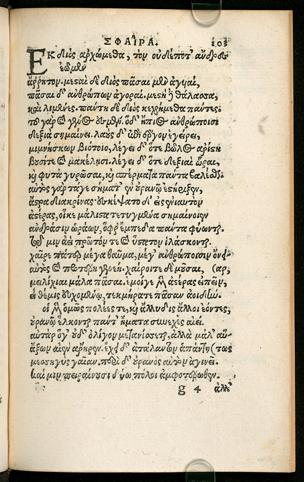 ΣΦΑΙΡΑ. 103
ΕΚ διὸς ἀρχώμεθα, τὸν οὐδέποτ' ἄνδρες
ἐῶμεν
ἄῤῥητον. μεσαὶ δὲ διὸς πᾶσαι μὲν ἀγυιαί,
πᾶσαι δ' ἀνθρώπων ἀγοραί. μεστὴ ἡ θάλασσα,
καὶ λιμένες. πάντη δὲ διὸς κεχρήμεθα πάντες.
τοῦ γὰρ καὶ γένος ἐσμέν. ὁ δ' ἤπιος ἀνθρώποισι
δεξιὰ σημαίνει. λαοὺς δ' ἐπὶ ἔργον ἐγείρει,
μιμνήσκων βιότοιο, λέγει δ' ὅτε βῶλος ἀρίστη
βουσί τε καὶ μακέλῃσι. λέγει δ' ὅτε δεξιαὶ ὧραι,
καὶ φυτὰ γυρῶσαι, καὶ σπέρματα πάντα βαλέσθαι
αὐτὸς γὰρ τάγε σήματ' ἐν οὐρανῷ ἐστήριξεν,
ἄστρα διακρίνας· ἐσκέψατο δ' εἰς ἐνιαυτὸν
ἀστέρας, οἵ κε μάλιστα τετυγμένα σημαίνοιεν
ἀνδράσιν ὡράων, ὄφρ' ἔμπεδα πάντα φύωνται.
τῷ μιν ἀεὶ πρῶτόν τε καὶ ὕστατον ἱλάσκονται.
χαῖρε πάτερ μέγα θαῦμα, μέγ' ἀνθρώποισιν ὄνειαρ,
αὐτὸς καὶ προτέρη γενεή. χαίροιτε δὲ μοῦσαι,
μειλίχιαι μάλα πᾶσαι. ἐμοί γε μὲν ἀστέρας εἰπεῖν,
εἰ θέμις εὐχομένῳ, τεκμήρατε πᾶσαν ἀοιδήν.
οἱ μὲν ὁμῶς πολέες τε, καὶ ἄλλυδις ἄλλοι ἐόντες,
οὐρανῷ ἕλκονται πάντ' ἤματα συνεχὲς αἰεί.
αὐτὰρ ὅγ' οὐδ' ὀλίγον μετανίσσεται, ἀλλὰ μάλ' αὕτως
ἄξων αἰὲν ἄρηρεν. ἔχει δ' ἀτάλαντον ἁπάντῃ
μεσσηγὺς γαῖαν. περὶ δ' οὐρανὸς αὐτὸν ἀγινεῖ.
καί μιν πειραίνουσι δύω πόλοι ἀμφοτέρωθεν.
g 4 ἀλλ'